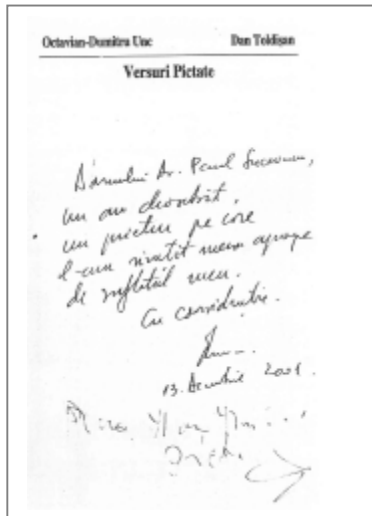 Octavian-Dumitru Unc Dan Toldişan
Versuri Pictate
Domnului Dr. Paul
un om deosebit,
un prieten pe care
l-am simţit mereu aproape
de sufletul meu.
Cu consideraţie.
13. Decembrie 2001.